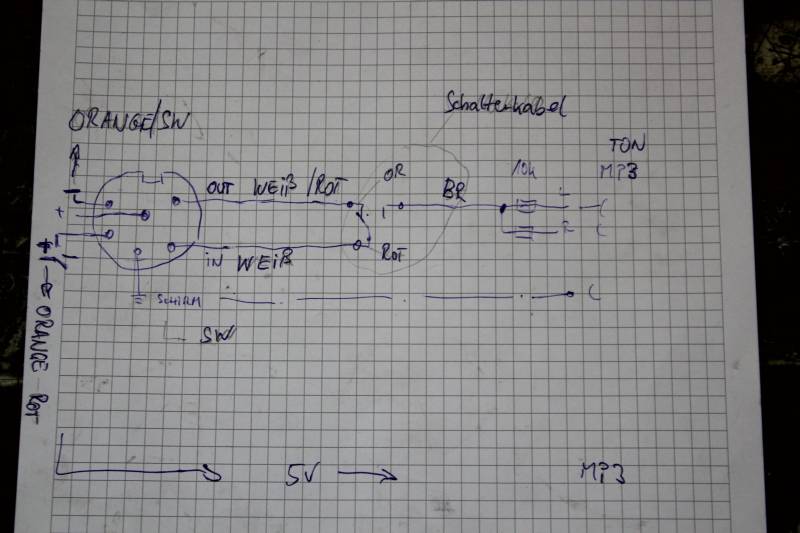 Schalterkabel
ORANGE/SW
TON
10k
MP3
OR
OUT WEIß/ROT
BR
L
+
R
ROT
IN WEIß
SCHIRM
SW
ORANGE ROT
5V
MP3